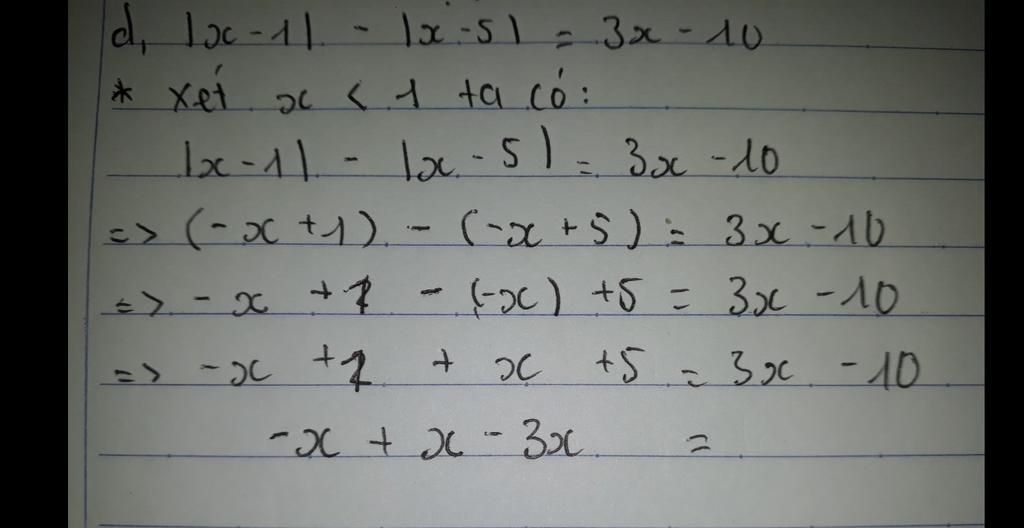 d, |x - 1| - |x - 5| = 3x - 10
* xét x < 1 ta có:
|x - 1| - |x - 5| = 3x - 10
=> (-x + 1) - (-x + 5) = 3x - 10
=> -x + 1 - (-x) + 5 = 3x - 10
=> -x + 1 + x + 5 = 3x - 10
-x + x - 3x =